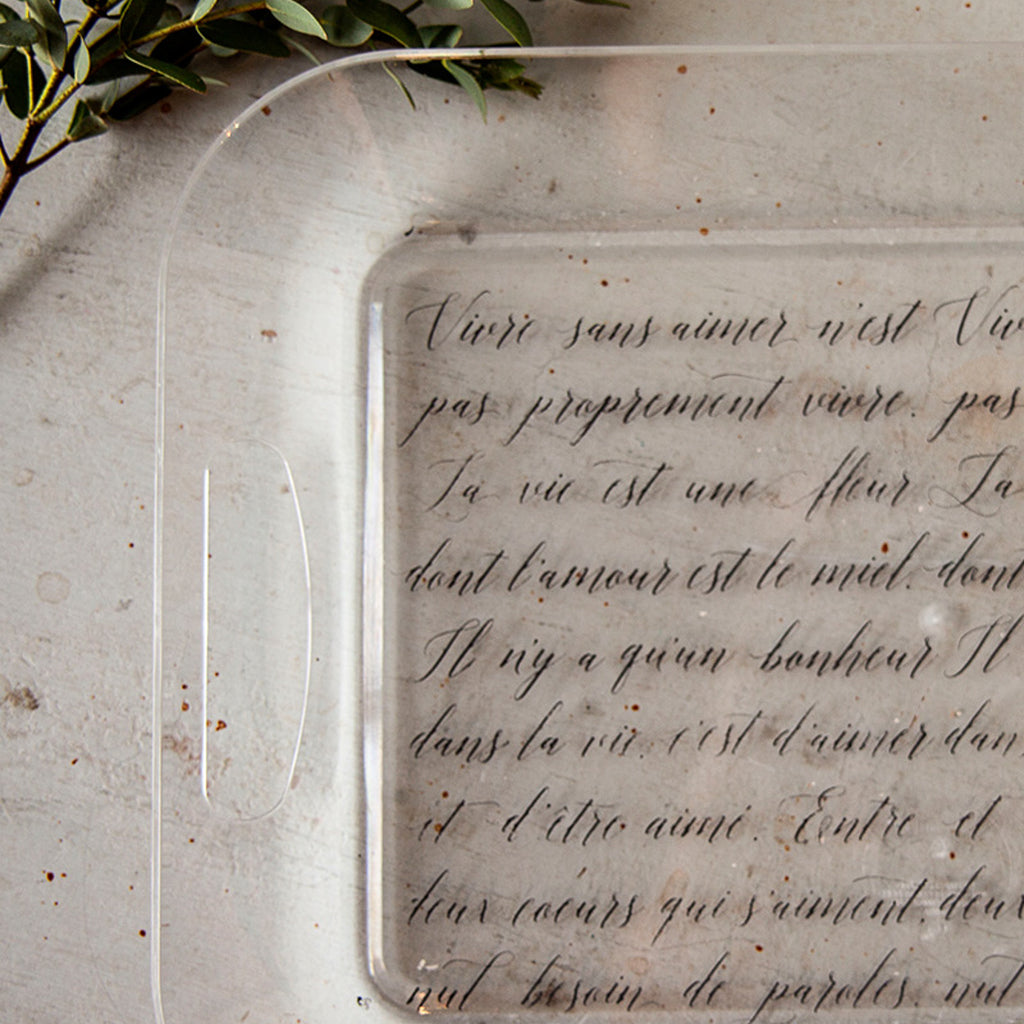 Vivre sans aimer n'est Viv
pas proprement vivre. pas
La vie est une fleur La
dont l'amour est le miel. dont
Il n'y a qu'un bonheur Il
dans la vie. c'est d'aimer dan
et d'être aimé. Entre et
deux coeurs qui s'aiment. deux
nul besoin de paroles. nul